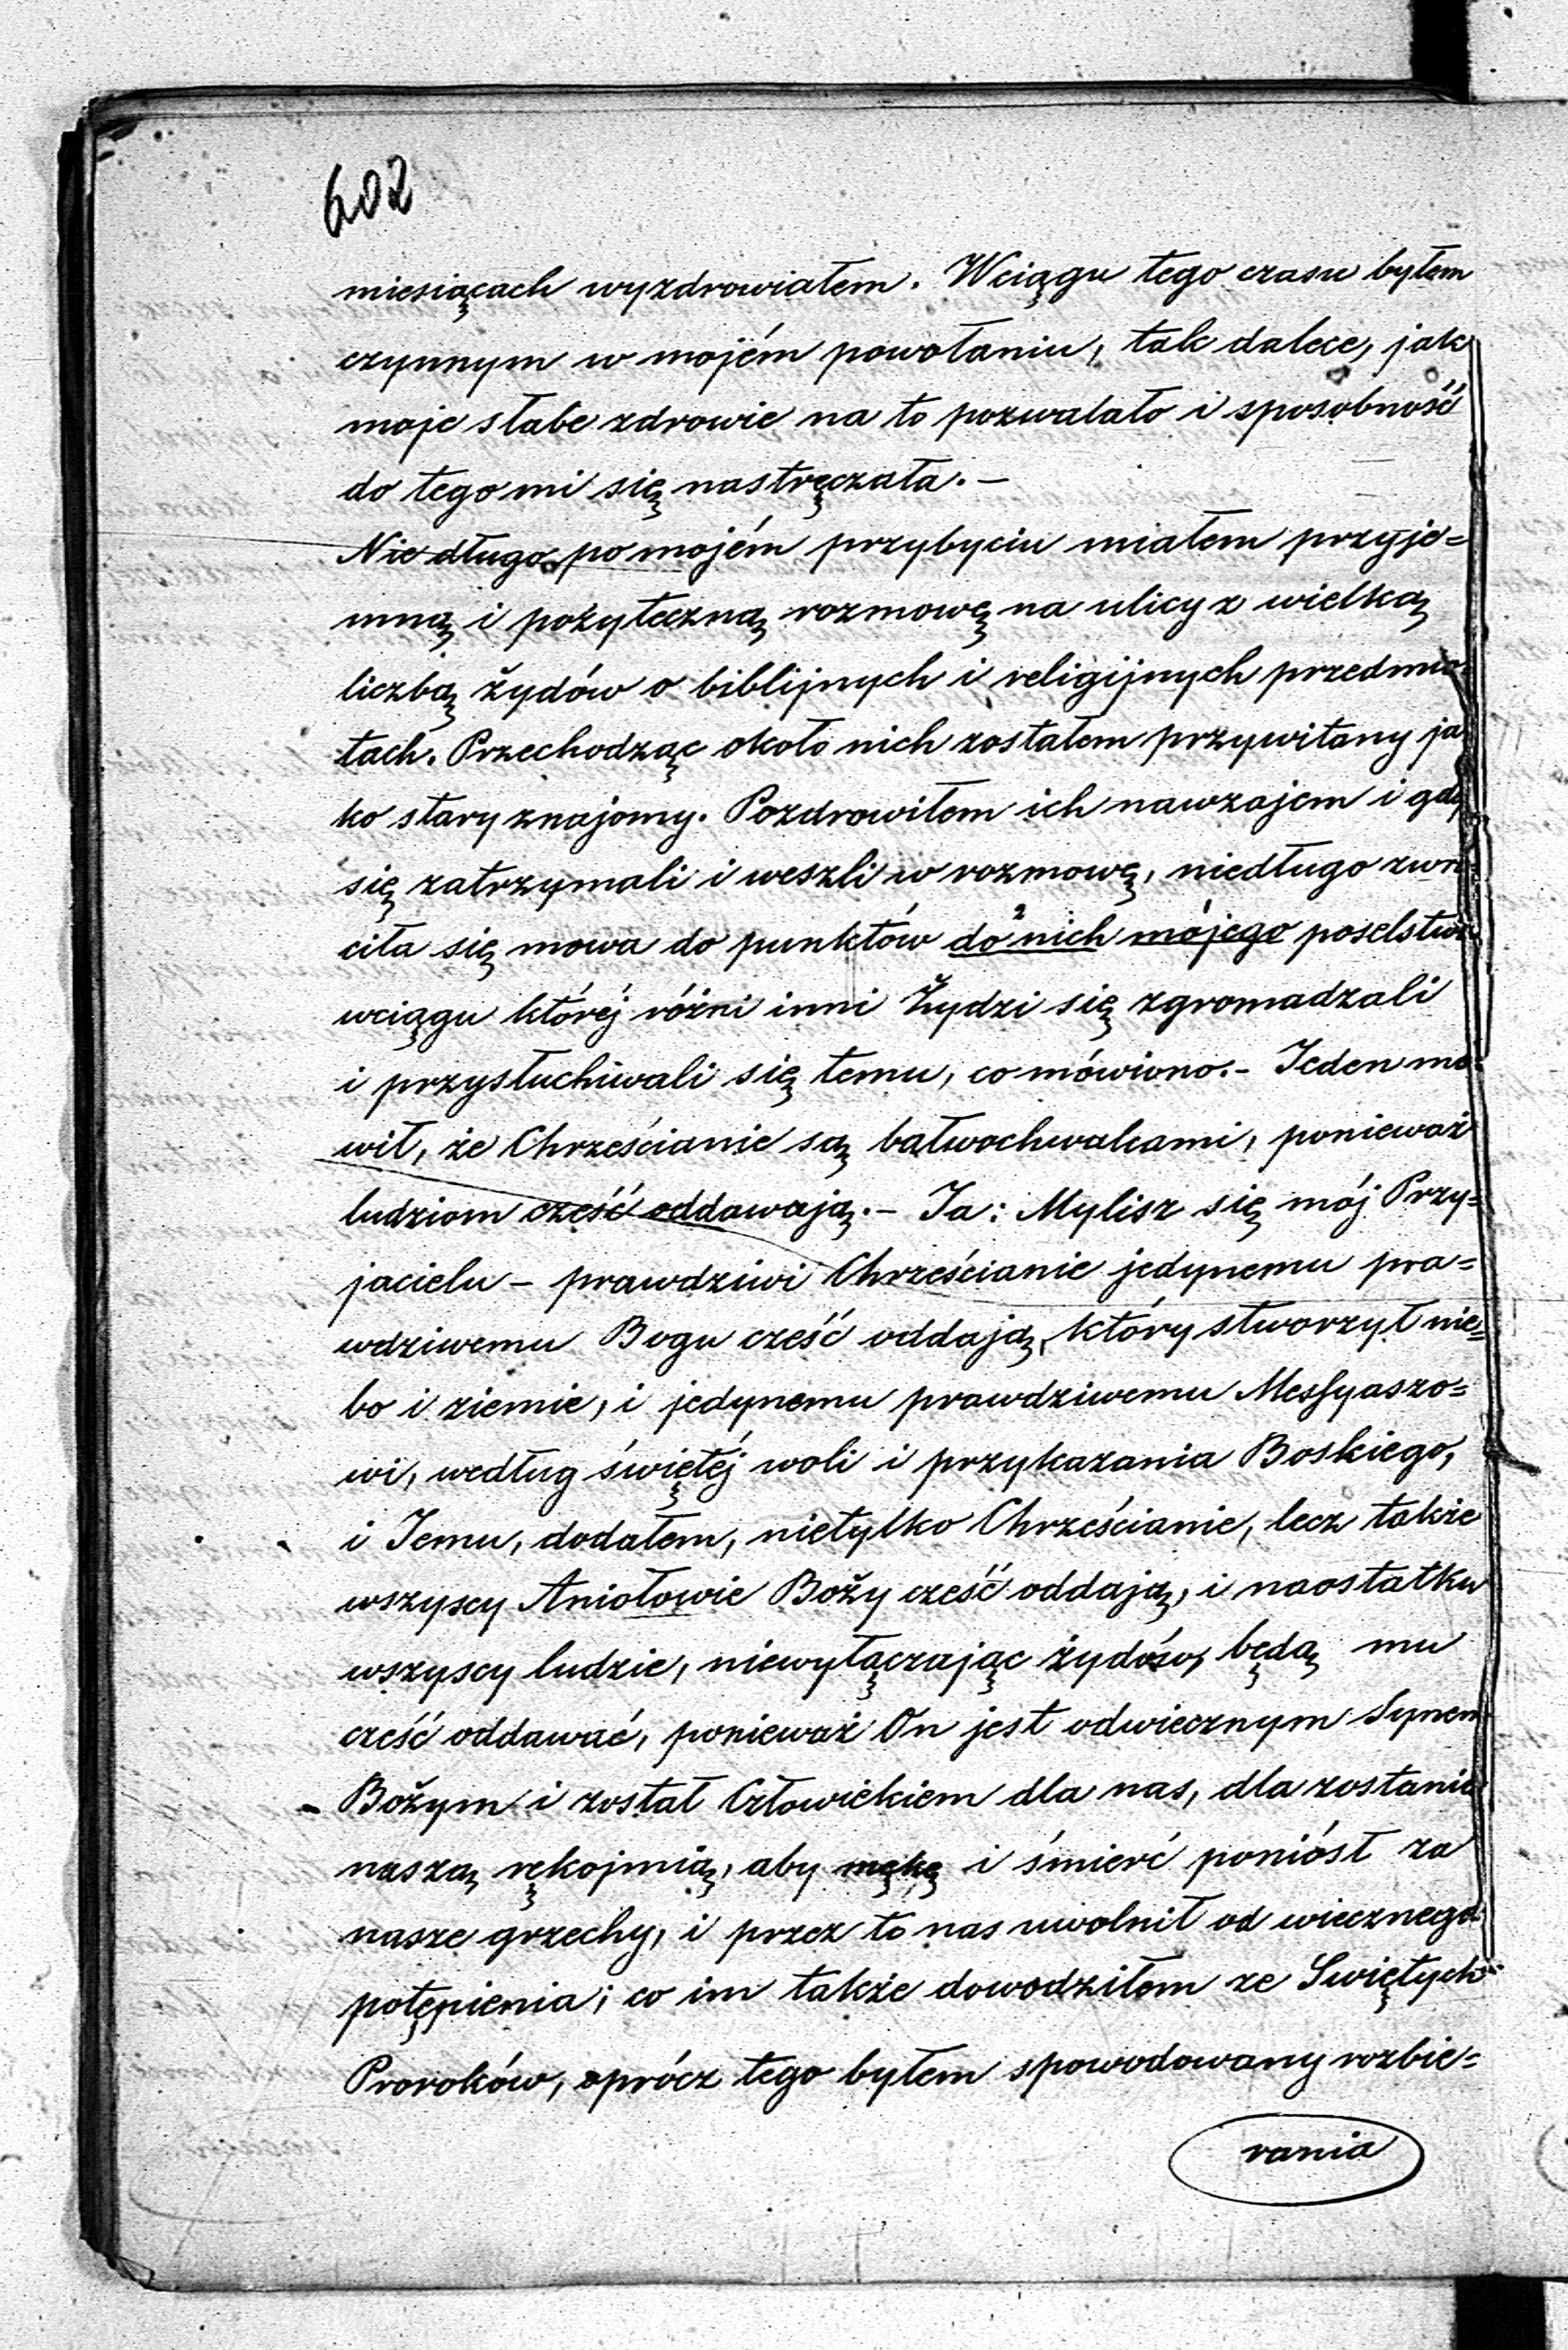 602
miesiącach wyzdrowiałem. Wciągu tego czasu byłem
czynnym w mojém powołaniu, tak dalece, jak
moje słabe zdrowie na to pozwalało i sposobność
do tego mi się nastręczała. –
Nie długo po mojém przybyciu miałem przyje=
mną i pożyteczną rozmowę na ulicy z wielką
liczbą żydów o biblijnych i religijnych przedmio-
tach. Przechodząc około nich zostałem przywitany ja
ko stary znajomy. Pozdrowiłem ich nawzajem i gdy
się zatrzymali i weszli w rozmowę, niedługo zwró
ciła się mowa do punktów do nich mojego poselstwa
wciągu któréj różni inni Żydzi się zgromadzali
i przysłuchiwali się temu, co mówiono. – Jeden mó
wił, że Chrześcianie są bałwochwalcami, ponieważ
ludziom cześć oddawają. – Ja: Mylisz się mój Przy=
jacielu – prawdziwi Chrześcianie jedynemu pra=
wdziwemu Bogu cześć oddają, który stworzył nie=
bo i ziemie, i jedynemu prawdziwemu Messyaszo=
wi, według świętéj woli i przykazania Boskiego,
i Jemu, dodałem, nietylko Chrześcianie, lecz także
wszyscy Aniołowie Boży cześć oddają, i naostatku
wszyscy ludzie, niewyłączając żydów, będą mu
cześć oddawać, ponieważ On jest odwiecznym Synem
Bożym i został Człowiekiem dla nas, dla zostania
naszą rękojmią, aby mękę i śmierć poniósł za
nasze grzechy, i przez to nas uwolnił od wiecznego
potępienia; co im także dowodziłem ze Swiętych
Proroków, oprócz tego byłem spowodowany rozbie=
rania